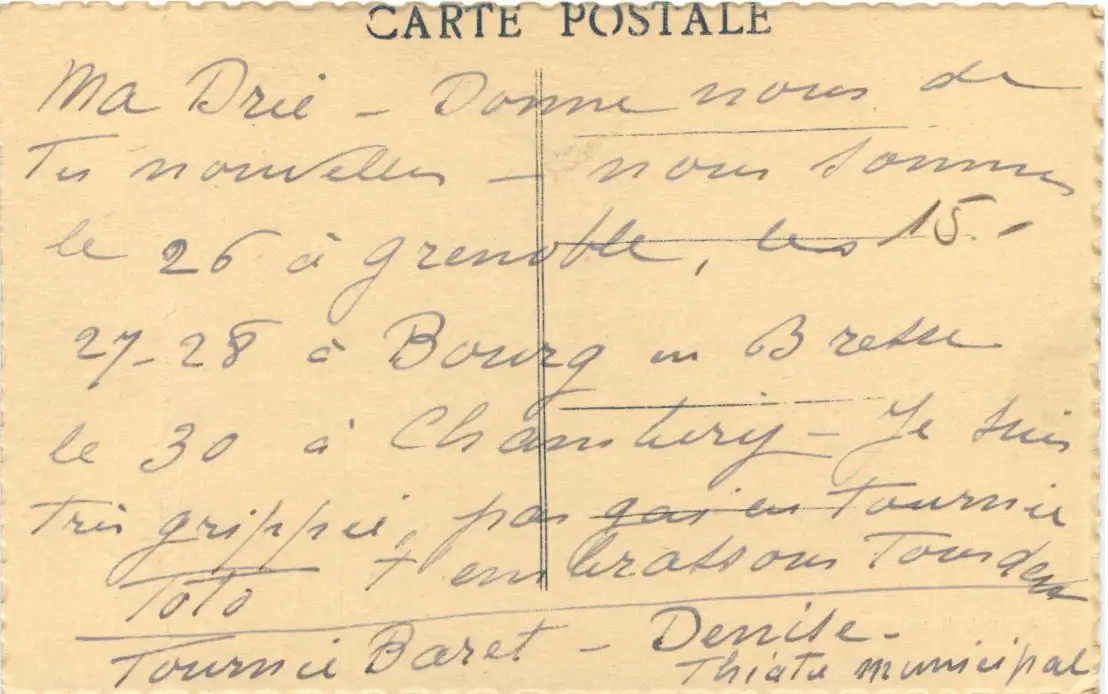 CARTE POSTALE
Ma Drie – Donne nous de
Tes nouvelles – nous sommes
le 26 à Grenoble, les 15 -
27-28 à Bourg en Bresse
le 30 à Chambery – Je suis
Très grippée, pas gai en Tournée
Toto + embrassons Tous deux
Tournée Baret – Denise -
Théatre municipal